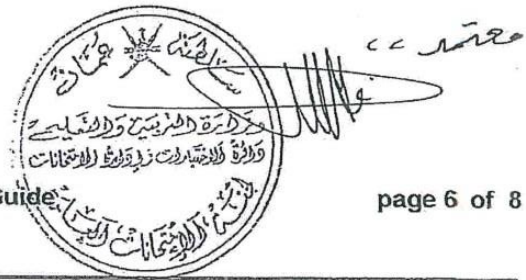 معتمد ،،
سلطنة عمان
وزارة التربية والتعليم
دائرة الاختبارات وإدارة الامتحانات
لجنة الامتحانات
Guide
page 6 of 8